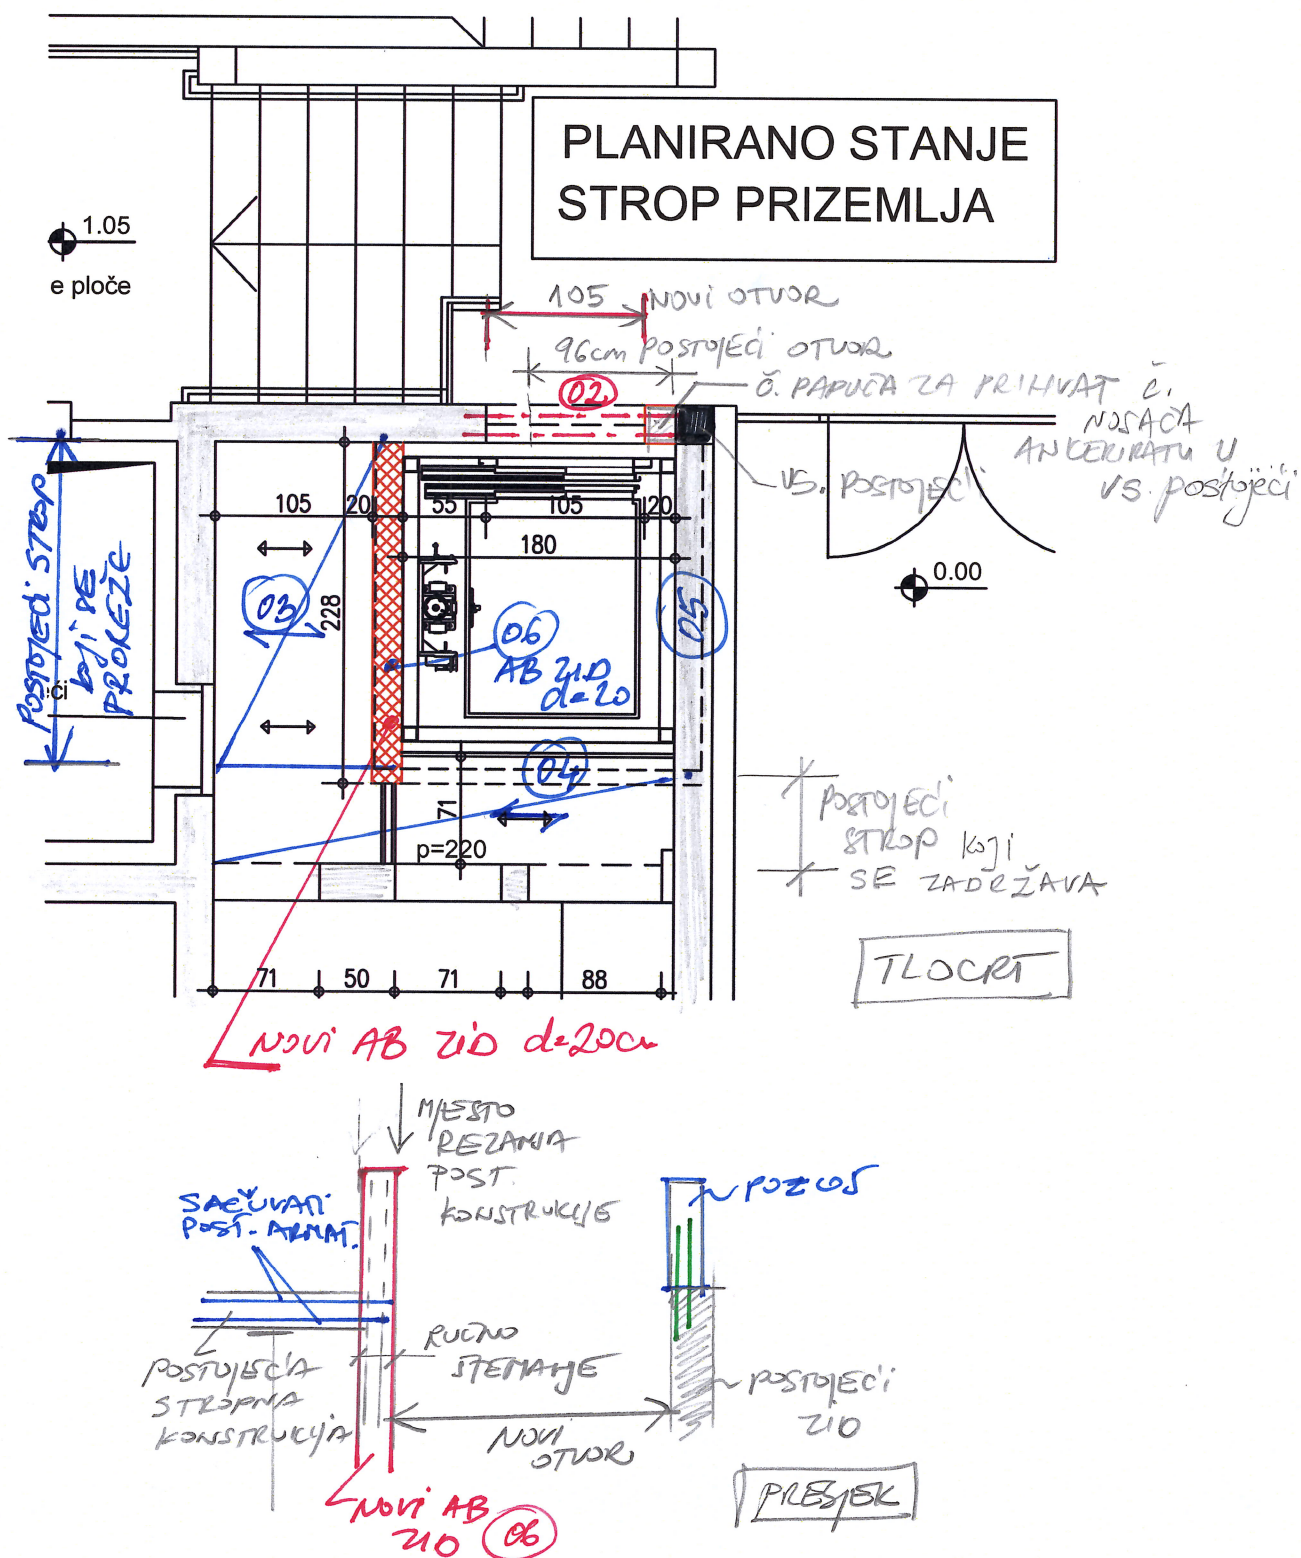 PLANIRANO STANJE
STROP PRIZEMLJA
1.05
e ploče
105 NOVI OTVOR
96cm POSTOJEĆI OTVOR
02
Č. PAPUČA ZA PRIHVAT Č.
NOSAČA
ANKERIRATI U
VS. postojeći
VS. POSTOJEĆI
POSTOJEĆI STROP
koji SE
PROREŽE
ći
105
20
55
105
20
180
228
03
06
AB ZID
d=20
05
0.00
04
71
p=220
POSTOJEĆI
STROP KOJI
SE ZADRŽAVA
TLOCRT
71
50
71
88
NOVI AB ZID d=20cm
MJESTO
REZANJA
POST.
KONSTRUKCIJE
SAČUVATI
POST. ARMAT.
POZ 05
RUČNO
ŠTEMANJE
POSTOJEĆA
STROPNA
KONSTRUKCIJA
POSTOJEĆI
ZID
NOVI
OTVOR
NOVI AB
ZID 06
PRESJEK